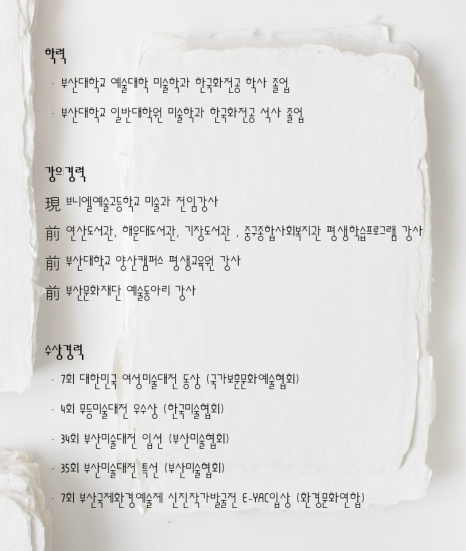 학력
· 부산대학교 예술대학 미술학과 한국화전공 학사 졸업
· 부산대학교 일반대학원 미술학과 한국화전공 석사 졸업
강의경력
現 브니엘예술고등학교 미술과 전임강사
前 연산도서관, 해운대도서관, 기장도서관 , 중구종합사회복지관 평생학습프로그램 강사
前 부산대학교 양산캠퍼스 평생교육원 강사
前 부산문화재단 예술동아리 강사
수상경력
· 7회 대한민국 여성미술대전 동상 (국가보훈문화예술협회)
· 4회 무등미술대전 우수상 (한국미술협회)
· 34회 부산미술대전 입선 (부산미술협회)
· 35회 부산미술대전 특선 (부산미술협회)
· 7회 부산국제환경예술제 신진작가발굴전 E-YAC입상 (환경문화연합)